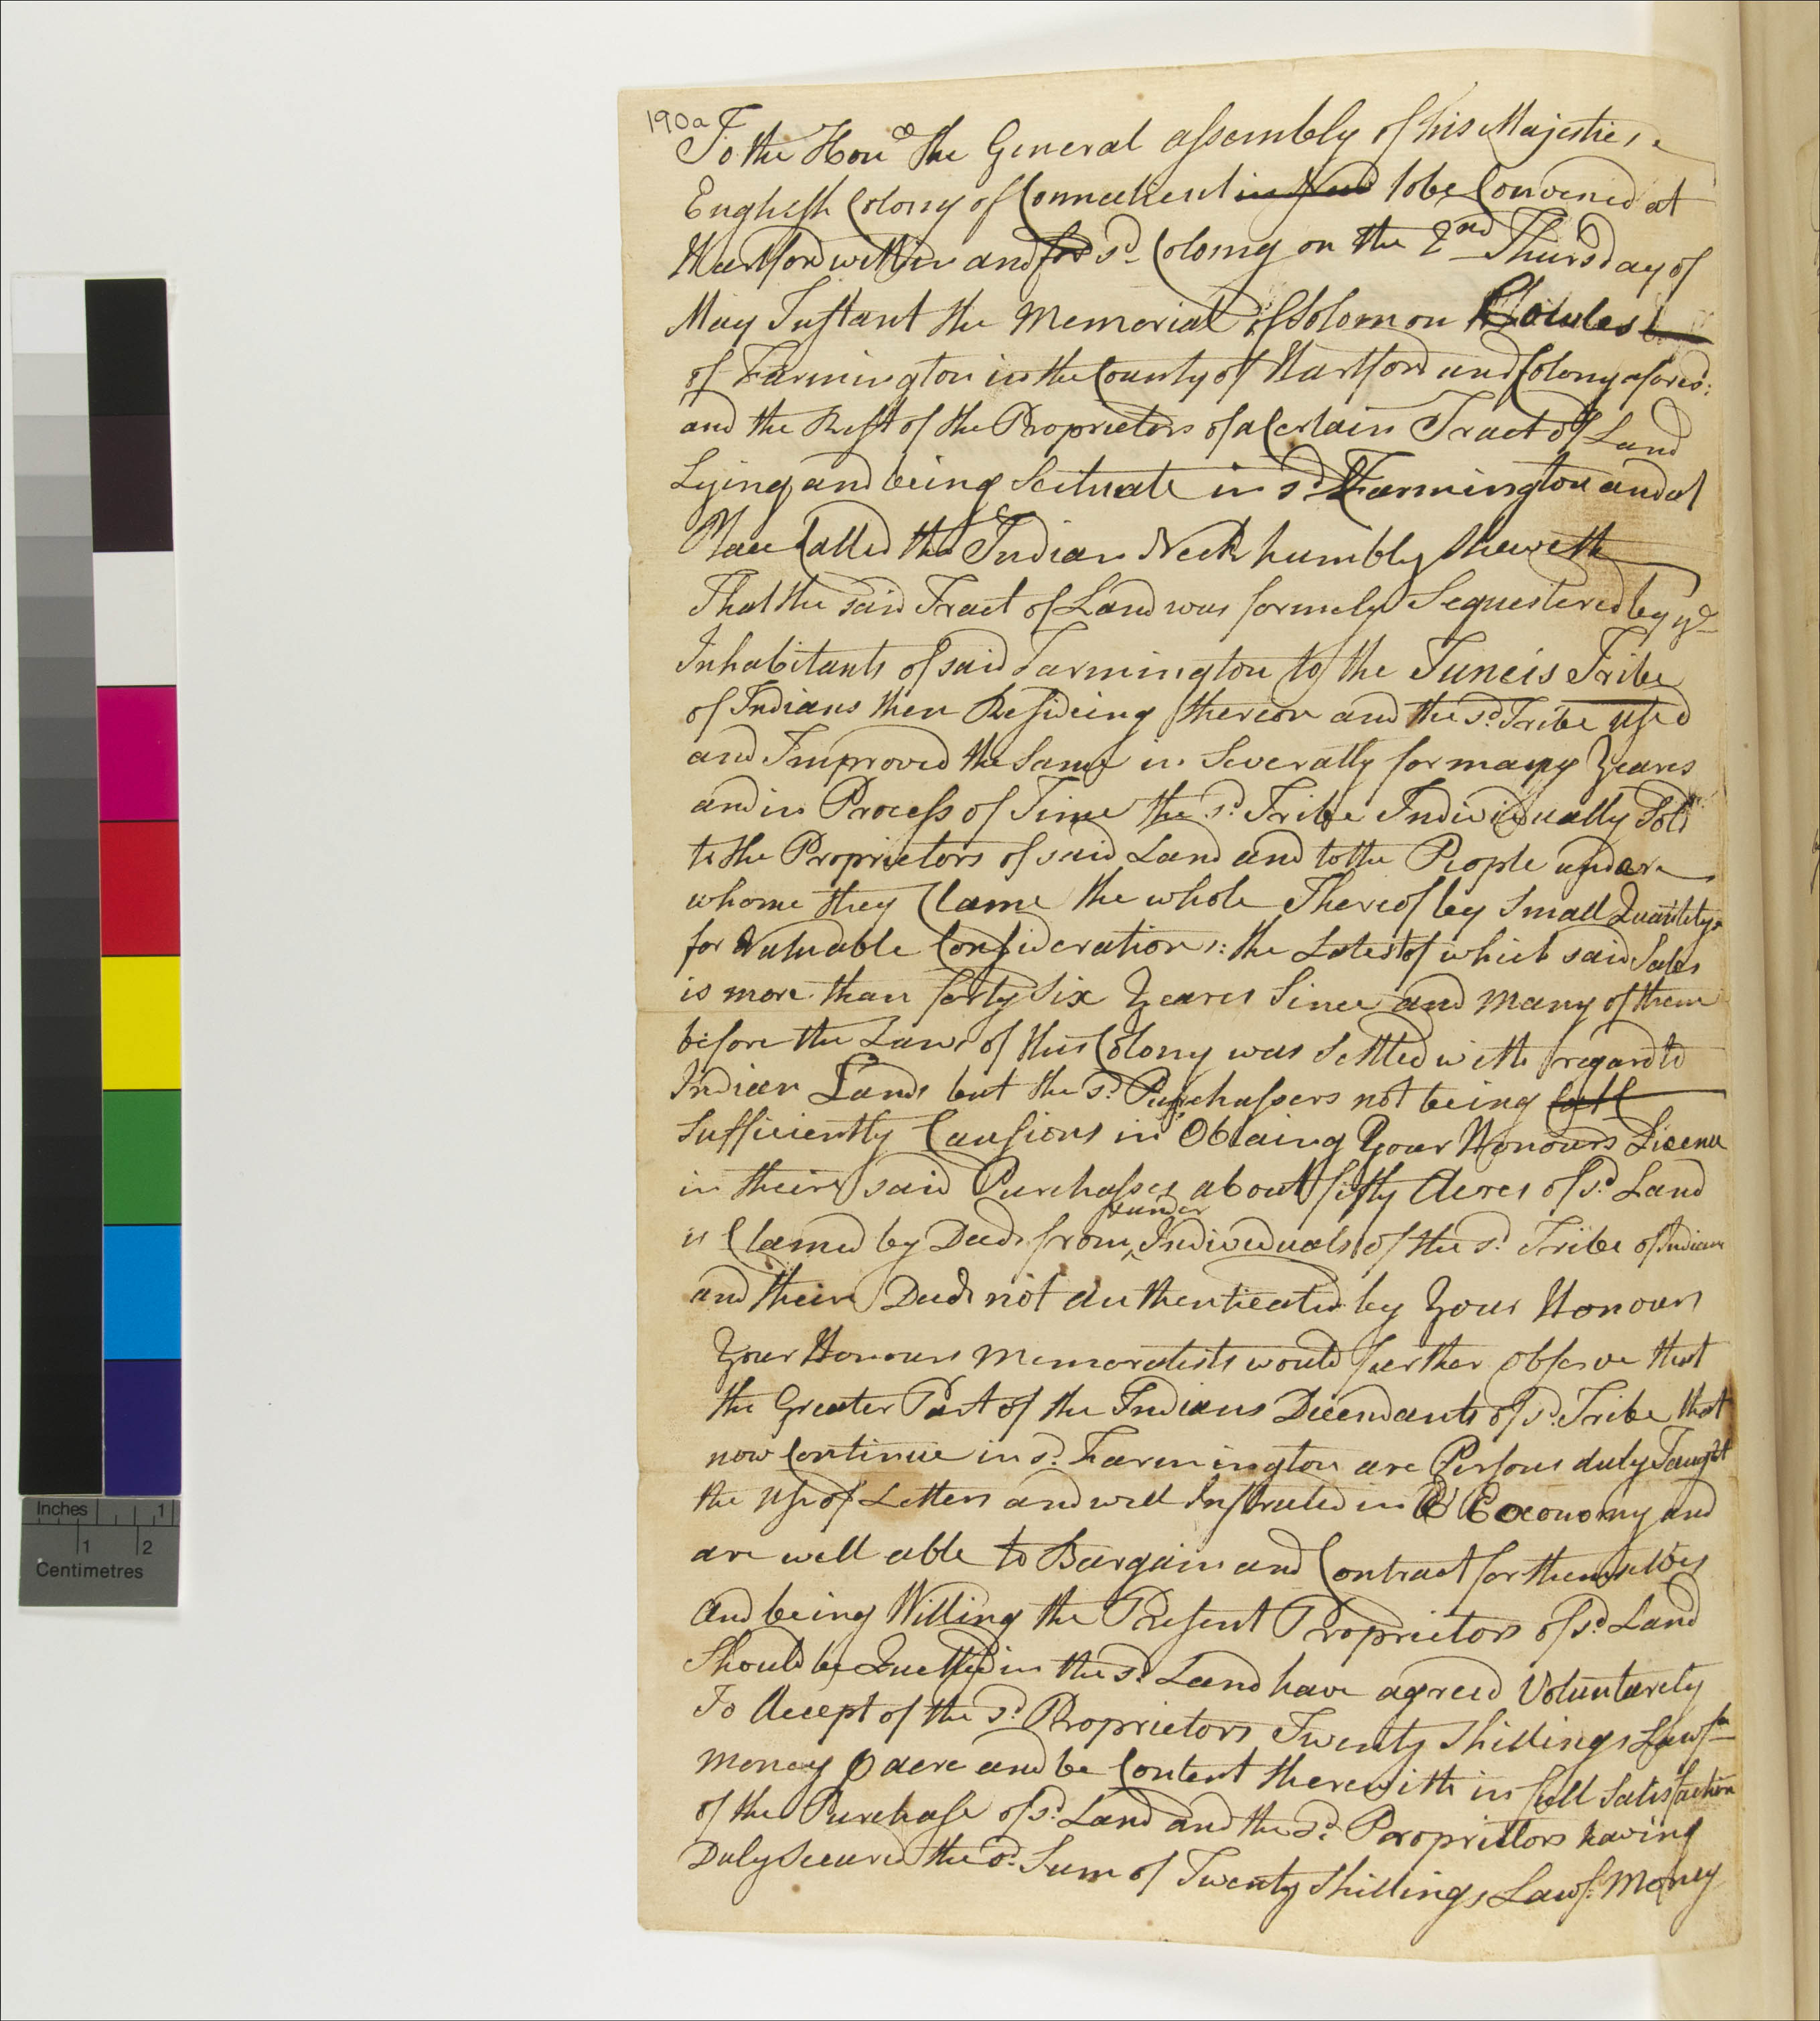 190a
To the Hon.d the General assembly of his Majesties
English Colony of Connecticut to be Convened at
Hartford within and for s.d Colony on the 2nd Thursday of
May Instant the Memorial of Solomon Cowles
of Farmington in the County of Hartford and Colony afores.d:
and the Rest of the Proprietors of a Certain Tract of Land
Lying and being Scituate in s.d Farmington and at
Place Called the Indian Neck humbly sheweth
That the said Tract of Land was formely Sequestered by ye
Inhabitants of said Farmington to the Tuncis Tribe
of Indians then Resideing thereon and the s.d Tribe used
and Improved the Same in Severalty for many Years
and in Process of Time the s.d Tribe Individually Sold
to the Proprietors of said Land and to the People under
whome they Clame the whole Thereof by Small Quantitys
for Valuable Considerations: the Latest of which said Sales
is more than forty Six Years Since and many of them
before the Laws of this Colony was Settled with regard to
Indian Lands but the s.d Purchasers not being
Sufficiently Causious in Obtaing Your Honours Licence
in their said Purchases about fifty Acres of s.d Land
is Clamed by Deeds from & under Individuals of the s.d Tribe of Indians
and their Deeds not Authenticated by Your Honours
Your Honours Memoralists would further observe that
the Greater Part of the Indians Decendants of s.d Tribe that
now Continue in s.d Farmington are Persons duly Taught
the Use of Letters and well Instructed in Oeconomy and
are well able to Bargain and Contract for themselves
and being Willing the Present Proprietors of s.d Land
Should be Quietted in the s.d Land have agreed Voluntarely
To Accept of the s.d Proprietors Twenty Shillings Lawf.ll
money P acre and be Content therewith in full Satisfaction
of the Purchase of s.d Land and the s.d Proprietors having
Duly Secured the s.d Sum of Twenty Shillings Lawf. Money
Inches 1
1 2
Centimetres